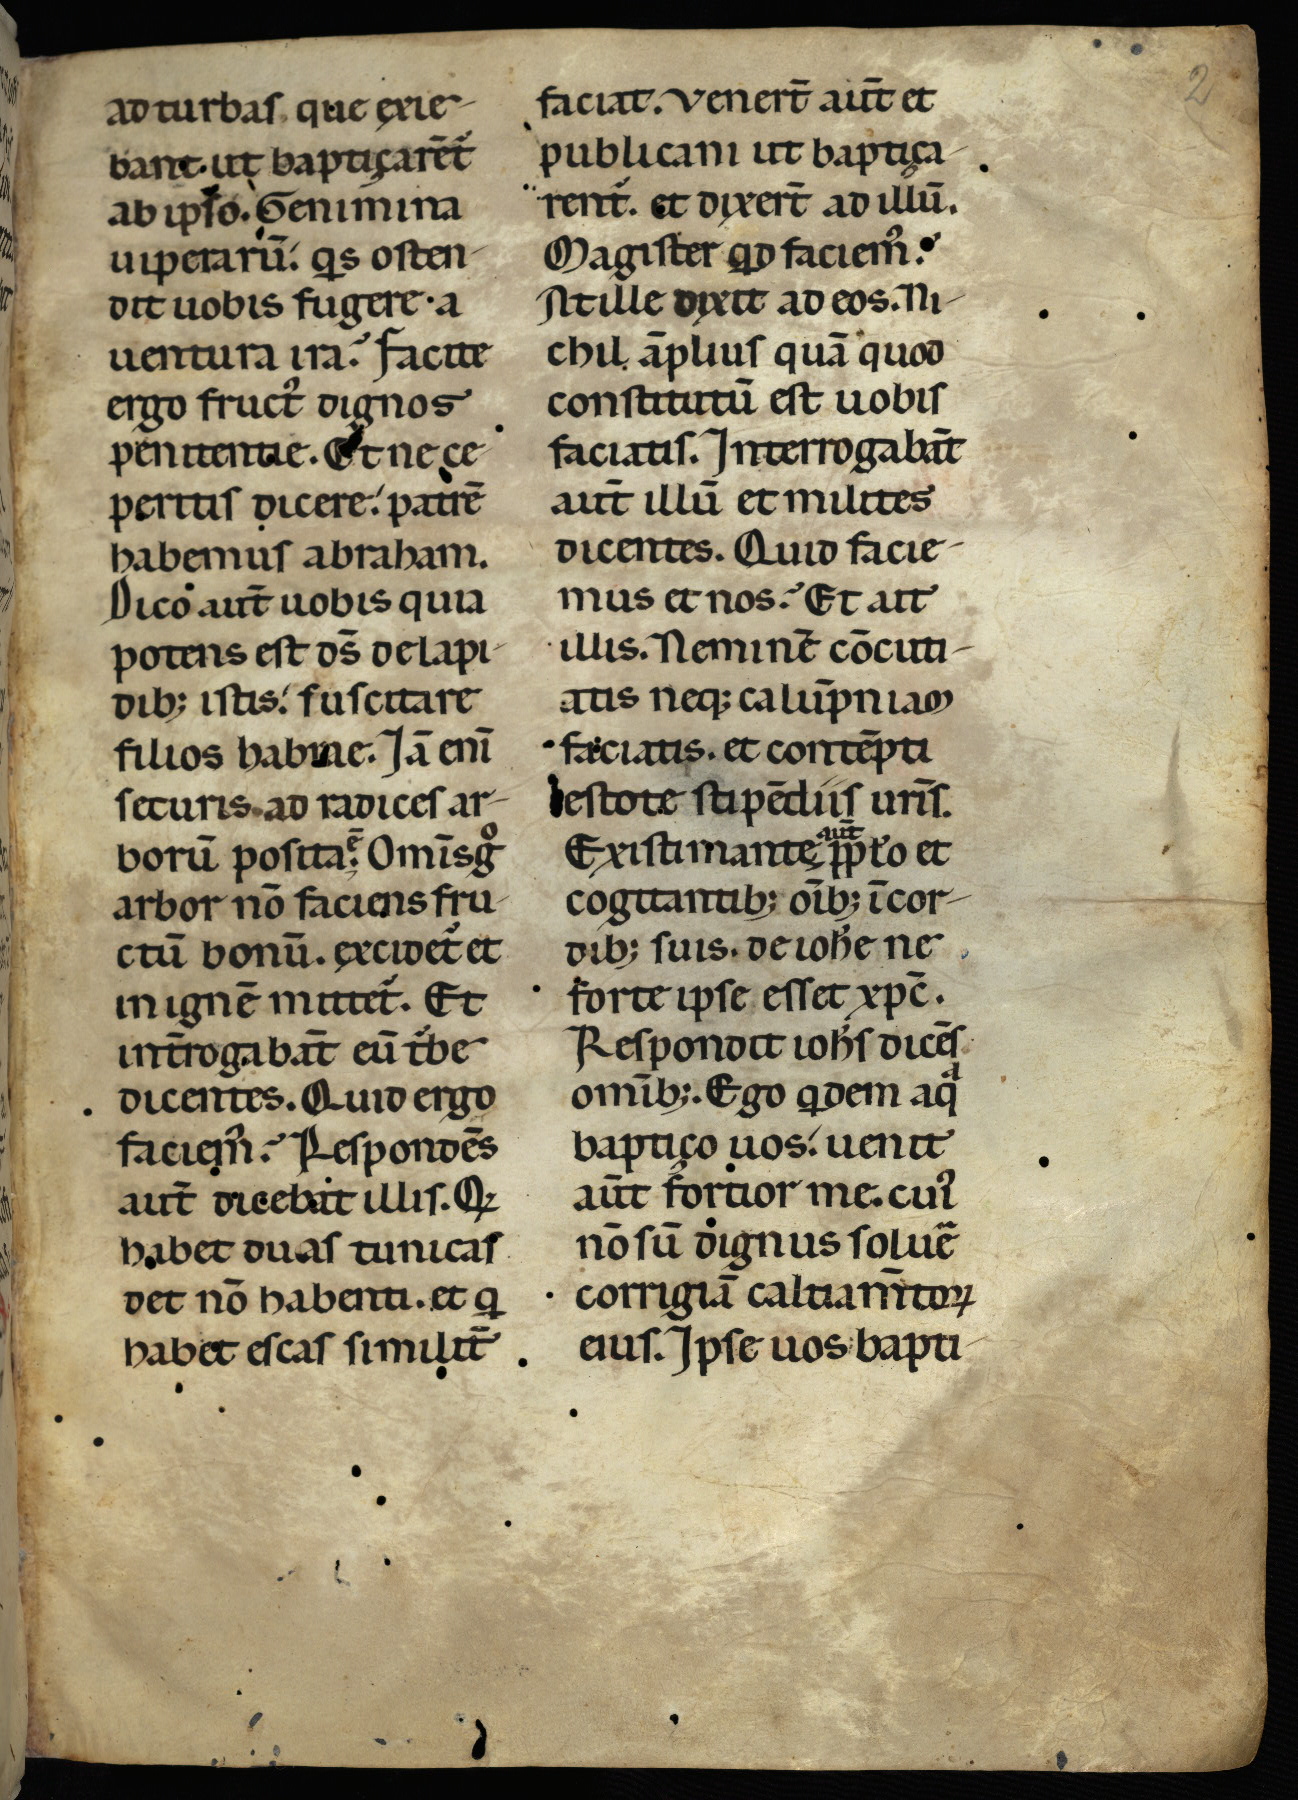 2
ad turbas que exie-
bant. ut baptiçarẽt᷑
ab ipso. Genimina
uiperarũ. qis osten-
dit uobis fugere a
uentura ira? Facite
ergo fruct᷒ dignos
pẽnitentie. Et ne ce-
peritis dicere. patrẽ
habemus abraham.
Dico aut̃ uobis quia
potens est ds̃ de lapi-
dib; istis. suscitare
filios habrae. Jã enĩ
securis ad radices ar-
borũ positaẽ. Omĩs gͦ
arbor nõ faciens fru-
ctũ bonũ. excidet᷑ et
in ignẽ mittet᷑. Et
int̃rogabãt eũ t᷑be
dicentes. Quid ergo
faciem᷒? Respondẽs
aut̃ dicebat illis. Qi
habet duas tunicas
det nõ habenti. et qi
habet escas similit̃
faciat. Venert̃ aut̃ et
publicani ut baptiça-
rent᷑. et dixert̃ ad illũ.
Magister qid faciem᷒?
At ille dixit ad eos. Ni-
chil ãplius quã quod
constitutũ est uobis
faciatis. Interrogabãt
aut̃ illũ et milites
dicentes. Quid facie-
mus et nos? Et ait
illis. Neminẽ cõcuti-
atis neq; calũpniam
faciatis. et contẽpti
estote stipẽdiis uris̃.
Existimante aut̃ ppło et
cogitantib; oĩb; ĩ cor-
dib; suis. de iohe ne
forte ipse esset xpc̃.
Respondit iohs dicẽs
omĩb;. Ego qidem aqᵃ
baptiço uos. uenit
aũt fortior me. cui᷒
nõ sũ dignus soluẽ
corrigiã caltiam̃toꝝ
eius. Ipse uos bapti-